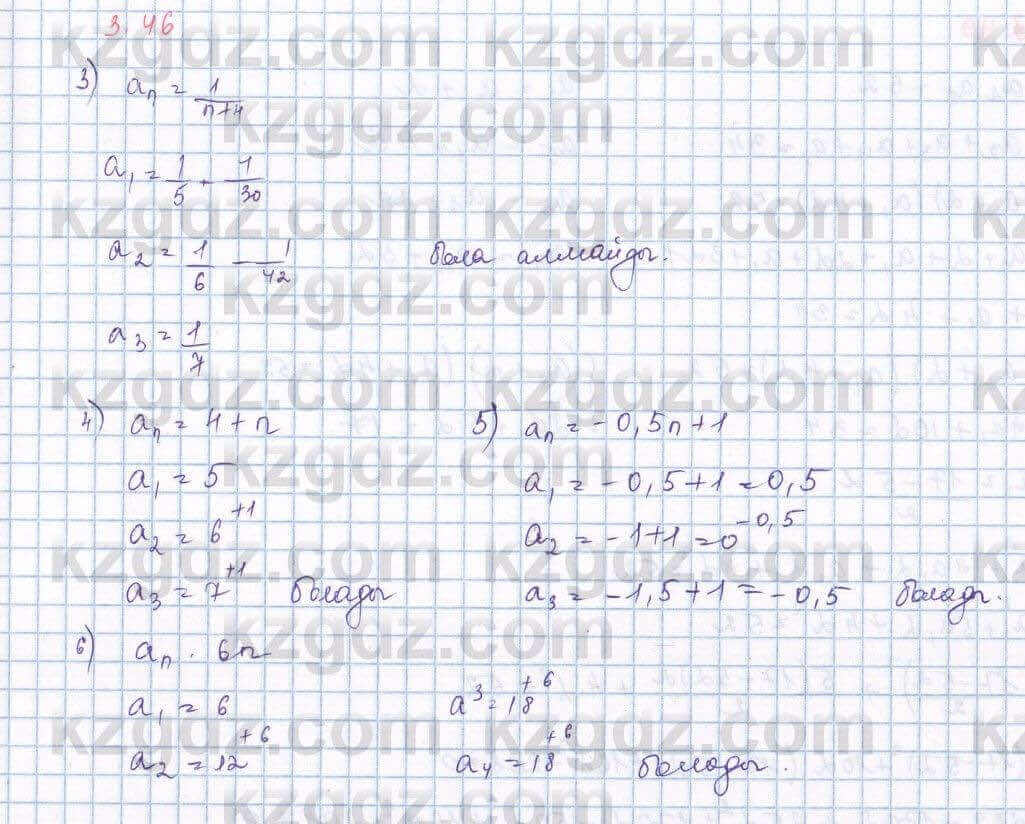 3.46
3) aₙ = 1/(n+4)
a₁ = 1/5 - 1/30
a₂ = 1/6 - 1/42 бола алмайды.
a₃ = 1/7
4) aₙ = 4+n
a₁ = 5
a₂ = 6 +1
a₃ = 7 +1 болады
5) aₙ = -0,5n+1
a₁ = -0,5+1=0,5
a₂ = -1+1=0 -0,5
a₃ = -1,5+1=-0,5 болады.
6) aₙ . 6n
a₁ = 6
a₂ = 12 +6
a³ = 18 +6
a₄ = 18 +6 болады.
kzgdz.com